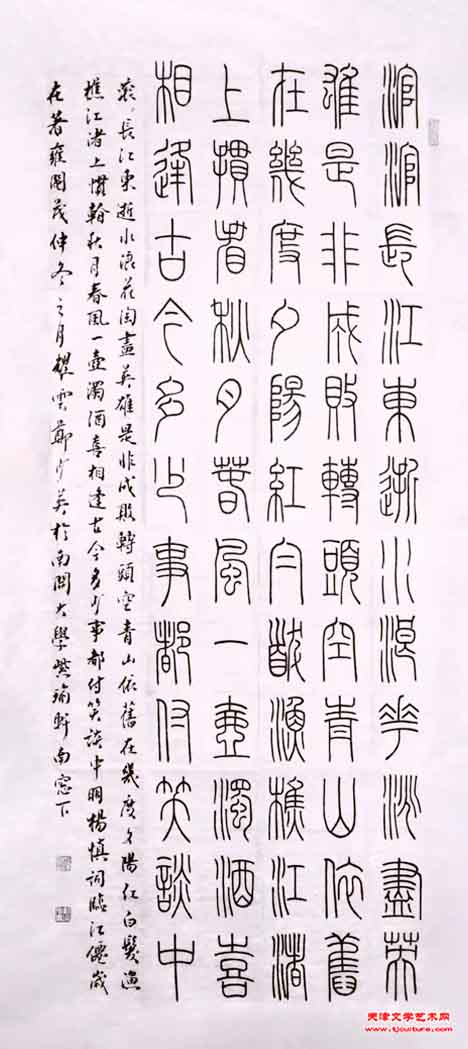 滾滾長江東逝水浪花淘盡英
雄是非成敗轉頭空青山依舊
在幾度夕陽紅白髮漁樵江渚
上慣看秋月春風一壺濁酒喜
相逢古今多少事都付笑談中
滾〻長江東逝水浪花淘盡英雄是非成敗轉頭空青山依舊在幾度夕陽紅白髮漁
樵江渚上慣看秋月春風一壺濁酒喜相逢古今多少事都付笑談中明楊慎詞臨江僊歲
在著雍閹茂仲冬之月耀雲鄭少英於南開大學紫瑜軒南窓下
天津文学艺术网
www.tjculture.com